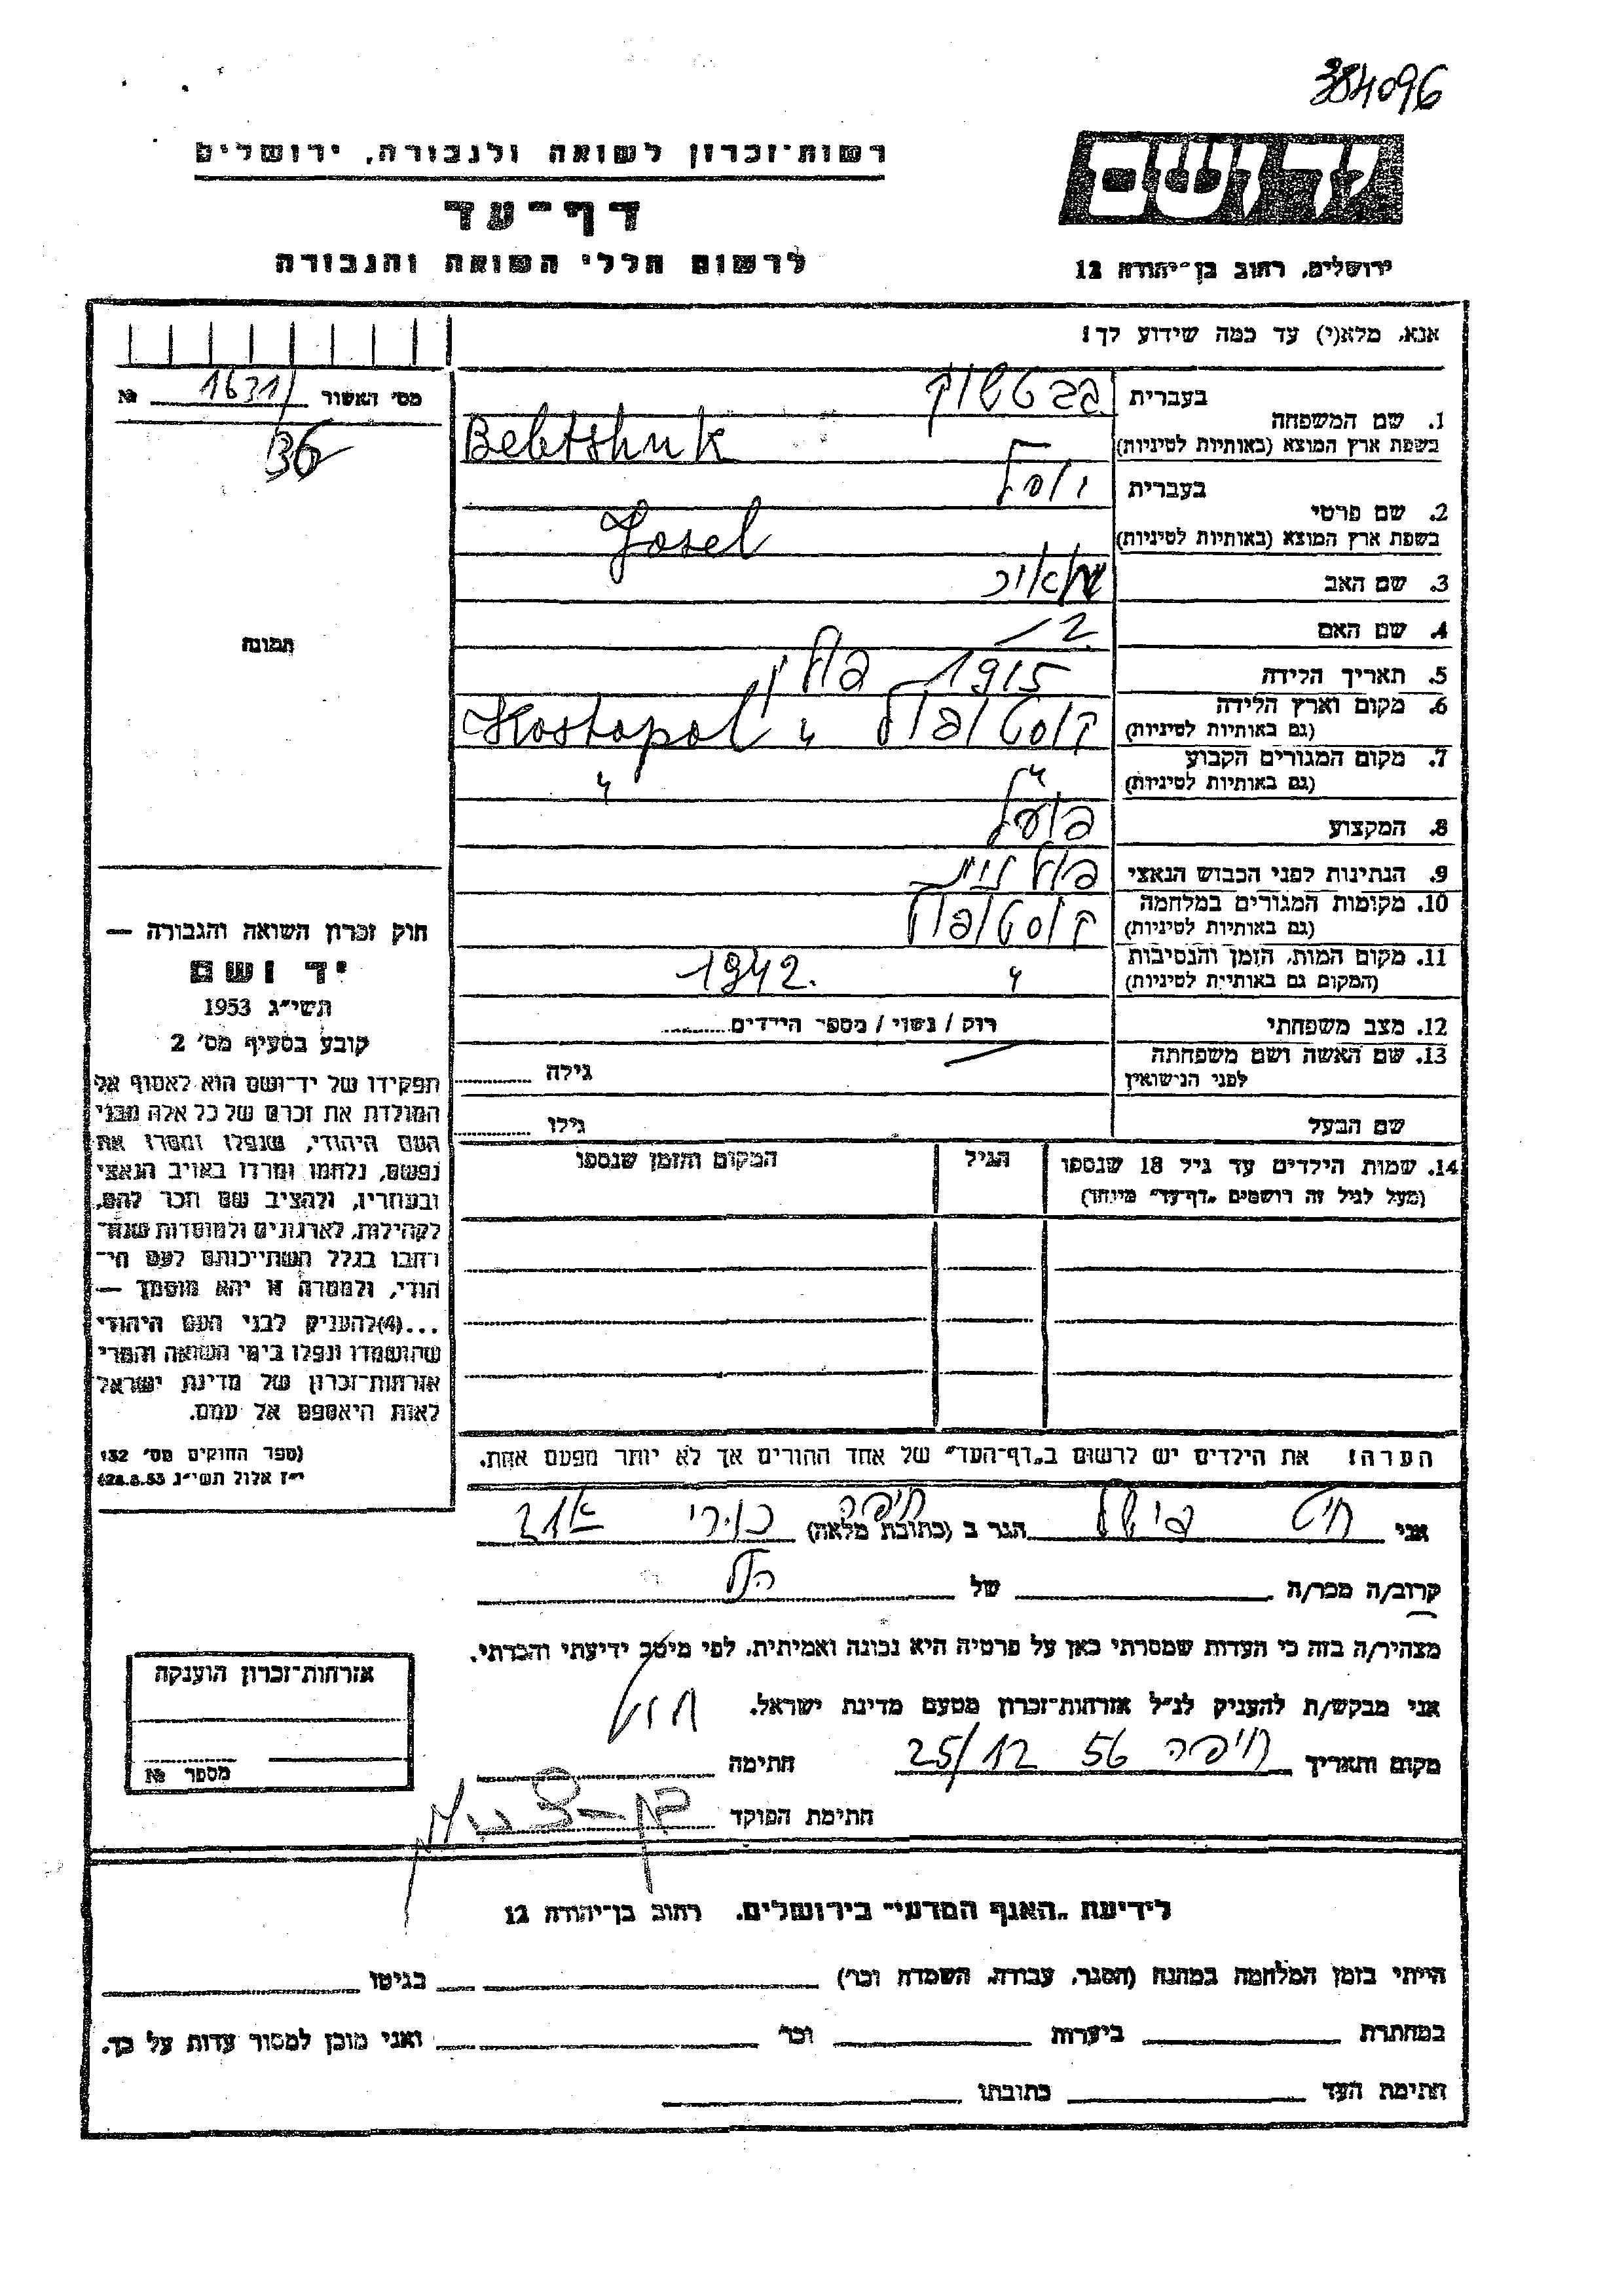 384096
רשות־זכרון לשואה ולגבורה, ירושלים
דף־עד
לרשום חללי השואה והגבורה
יד ושם
ירושלים, רחוב בן־יהודה 12
אנא, מלא(י) עד כמה שידוע לך!
מס׳ האשור 1631/ №
36
תמונה
1. שם המשפחה
בעברית
בשפת ארץ המוצא (באותיות לטיניות) Bebtshuk
2. שם פרטי
בעברית יוסל
בשפת ארץ המוצא (באותיות לטיניות) Josel
3. שם האב
4. שם האם
5. תאריך הלידה 1915 פולין
6. מקום וארץ הלידה
(גם באותיות לטיניות) קוסטופול " Kostopol
7. מקום המגורים הקבוע
(גם באותיות לטיניות) " "
8. המקצוע פועל
9. הנתינות לפני הכבוש הנאצי פולנית
10. מקומות המגורים במלחמה
(גם באותיות לטיניות) קוסטופול
11. מקום המות, הזמן והנסיבות
(המקום גם באותיות לטיניות) " 1942.
12. מצב משפחתי רוק / נשוי / מספר הילדים
13. שם האשה ושם משפחתה
לפני הנישואין גילה
שם הבעל גילו
14. שמות הילדים עד גיל 18 שנספו הגיל המקום והזמן שנספו
(מעל לגיל זה רושמים „דף־עד” מיוחד)
הערה! את הילדים יש לרשום ב„דף־העד” של אחד ההורים אך לא יותר מפעם אחת.
חוק זכרון השואה והגבורה —
יד ושם
תשי״ג 1953
קובע בסעיף מס׳ 2
תפקידו של יד־ושם הוא לאסוף אל
המולדת את זכרם של כל אלה מבני
העם היהודי, שנפלו ומסרו את
נפשם, נלחמו ומרדו באויב הנאצי
ובעוזריו, ולהציב שם וזכר להם,
לקהילות, לארגונים ולמוסדות שנח־
רבו בגלל השתייכותם לעם הי־
הודי, ולמטרה זו יהא מוסמך —
...(4) להעניק לבני העם היהודי
שהושמדו ונפלו בימי השואה והמרי
אזרחות־זכרון של מדינת ישראל
לאות היאספם אל עמם.
(ספר החוקים מס׳ 132
י״ז אלול תשי״ג 28.8.53)
אני חיט הגר ב (כתובת מלאה) חיפה
קרוב/ה מכר/ה של הנ״ל
מצהיר/ה בזה כי העדות שמסרתי כאן על פרטיה היא נכונה ואמיתית, לפי מיטב ידיעתי והכרתי.
אני מבקש/ת להעניק לנ״ל אזרחות־זכרון מטעם מדינת ישראל.
מקום ותאריך חיפה 25/12 56 חתימה
חתימת הפוקד
אזרחות־זכרון הוענקה
מספר №
לידיעת „האגף המדעי” בירושלים, רחוב בן־יהודה 12
הייתי בזמן המלחמה במחנה (הסגר, עבודה, השמדה וכו׳) בגיטו
במחתרת ביערות וכו׳ ואני מוכן למסור עדות על כך.
חתימת העד כתובתו